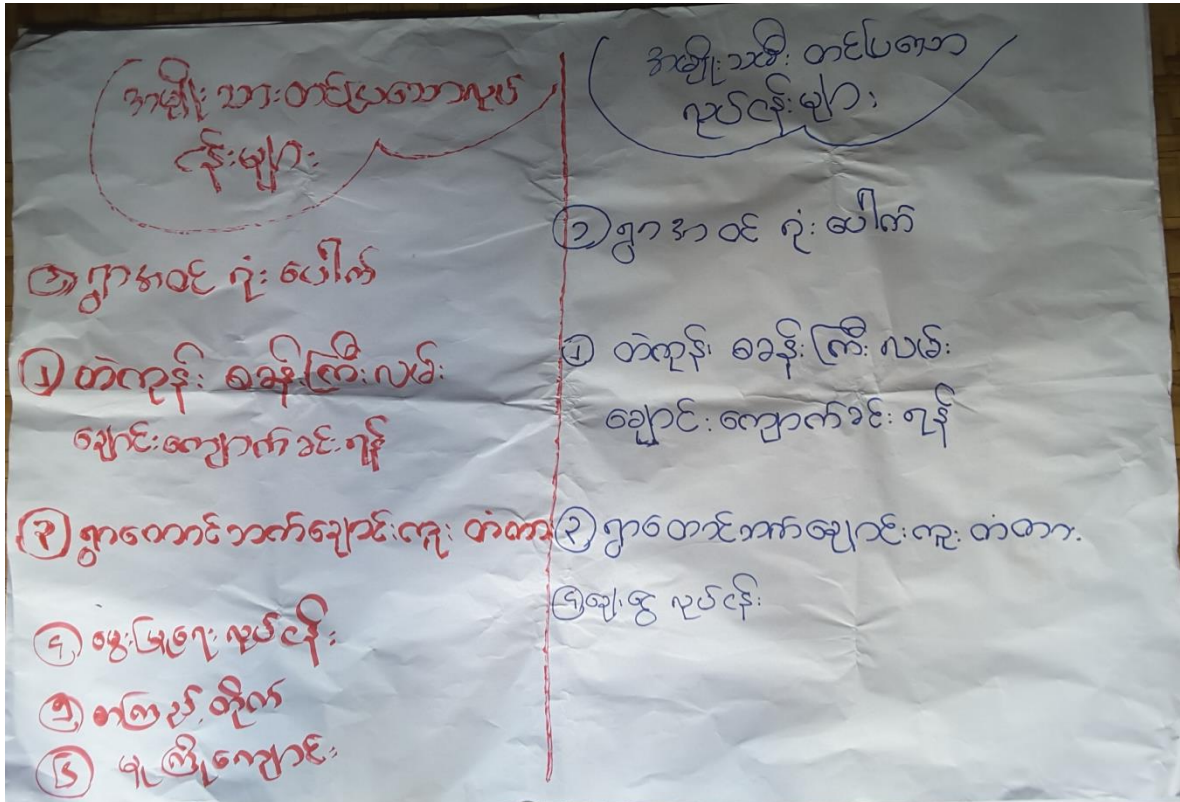 အမျိုးသားတင်ပြသောလုပ်
ငန်းများ
၁ ရွာအဝင် ဂုံးပေါက်
၂ တဲကုန်း စခန်းကြီးလမ်း
ချောင်းကျောက်ခင်းရန်
၃ ရွာတောင်ဘက်ချောင်းကူးတံတား
၄ မွေးမြူရေးလုပ်ငန်း
၅ စာကြည့်တိုက်
၆ မူကြိုကျောင်း
အမျိုးသမီး တင်ပြသော
လုပ်ငန်းများ
၁ ရွာအဝင် ဂုံးပေါက်
၂ တဲကုန်း စခန်းကြီးလမ်း
ချောင်းကျောက်ခင်းရန်
၃ ရွာတောင်ဘက်ချောင်းကူးတံတား
၄ ချေးငွေ လုပ်ငန်း